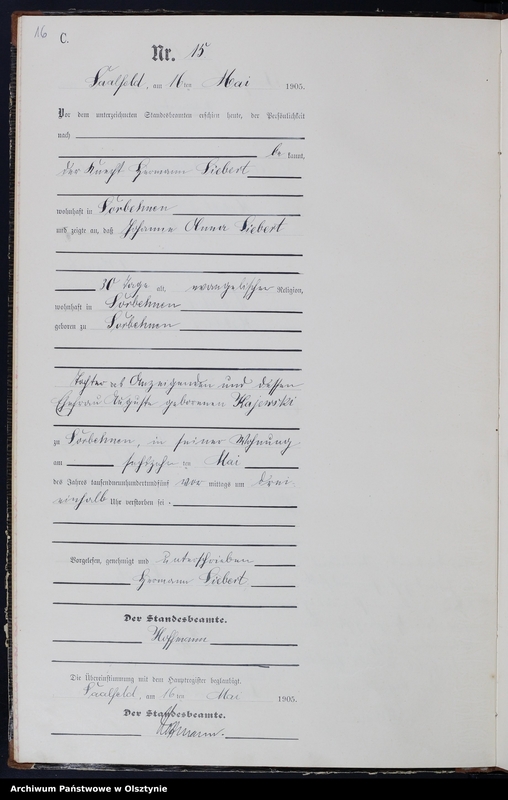 16
C.
Nr. 15
Saalfeld, am 16ten Mai 1905.
Vor dem unterzeichneten Standesbeamten erschien heute, der Persönlichkeit
nach
be kannt,
der Knecht Hermann Siebert
wohnhaft in Sorbehnen
und zeigte an, daß Johanne Anna Siebert
30 Tage alt, evangelischer Religion,
wohnhaft in Sorbehnen
geboren zu Sorbehnen
Tochter des Anzeigenden und dessen
Ehefrau Auguste geborenen Kajewski
zu Sorbehnen, in seiner Wohnung
am sechszehn ten Mai
des Jahres tausendneunhundertundfünf vor mittags um drei
einhalb Uhr verstorben sei.
Vorgelesen, genehmigt und unterschrieben
Hermann Siebert
Der Standesbeamte.
Hoffmann
Die Übereinstimmung mit dem Hauptregister beglaubigt.
Saalfeld, am 16ten Mai 1905.
Der Standesbeamte.
Hoffmann.
Archiwum Państwowe w Olsztynie